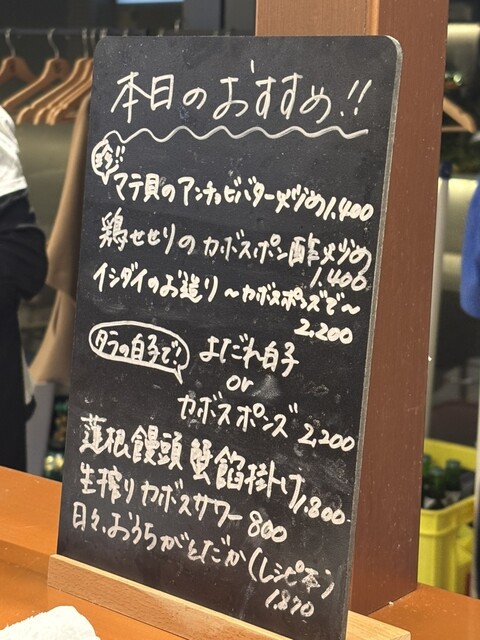 本日のおすすめ!!
マテ貝のアンチョビバター炒め1,400
鶏せせりのカボスポン酢炒め
1,400
イシダイのお造り〜カボスポンズで〜
2,200
タラの白子で! よだれ白子
or
カボスポンズ 2,200
蓮根饅頭 蟹餡掛け 1,800
生搾りカボスサワー 800
日々、おうちがとだか(レシピ本)
1,870